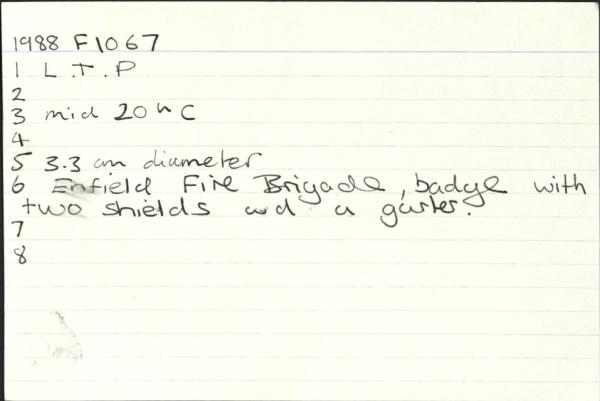 1988 F1067
1 L.T.P
2
3 mid 20th C
4
5 3.3 cm diameter
6 Enfield Fire Brigade, badge with
two shields and a garter.
7
8